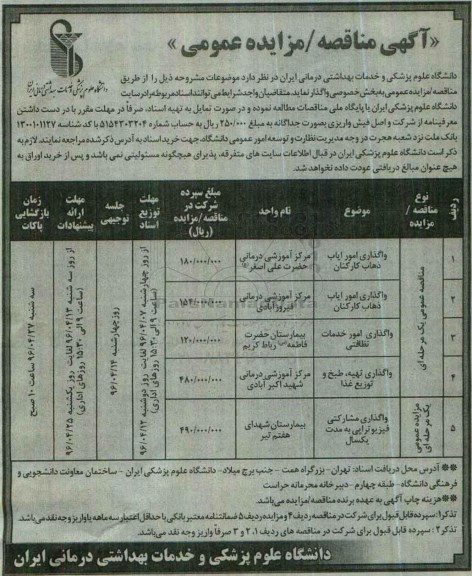 «آگهی مناقصه/مزایده عمومی»
دانشگاه علوم پزشکی و خدمات بهداشتی درمانی ایران
دانشگاه علوم پزشکی و خدمات بهداشتی درمانی ایران در نظر دارد موضوعات مشروحه ذیل را از طریق
مناقصه/مزایده عمومی به بخش خصوصی واگذار نماید. متقاضیان واجد شرایط می توانند اسناد مربوطه را در سایت
دانشگاه علوم پزشکی ایران یا پایگاه ملی مناقصات مطالعه نموده و در صورت تمایل به تهیه اسناد، صرفاً در مهلت مقرر با در دست داشتن
معرفینامه از شرکت و اصل فیش واریزی بصورت جداگانه به مبلغ ۲۵۰/۰۰۰ ریال به حساب شماره ۵۱۵۴۳۰۳۲۰۴ با کد شناسه ۱۳۰۰۱۰۱۱۲۷
بانک ملت نزد شعبه هجرت در وجه مدیریت نظارت و توسعه امور عمومی دانشگاه، جهت خرید اسناد به آدرس ذکر شده مراجعه نمایند. لازم به
ذکر است دانشگاه علوم پزشکی ایران در قبال اطلاعات سایت های متفرقه، پذیرای هیچگونه مسئولیتی نمی باشد و پس از خرید اوراق به
هیچ عنوان مبالغ دریافتی عودت داده نخواهد شد.
ردیف
نوع مناقصه/مزایده
موضوع
نام واحد
مبلغ سپرده شرکت در مناقصه/مزایده (ریال)
مهلت توزیع اسناد
جلسه توجیهی
مهلت ارائه پیشنهادات
زمان بازگشایی پاکات
۱ واگذاری امور ایاب ذهاب کارکنان مرکز آموزشی درمانی حضرت علی اصغر(ع) ۱۸۰/۰۰۰/۰۰۰
۲ واگذاری امور ایاب ذهاب کارکنان مرکز آموزشی درمانی فیروزآبادی ۱۵۴/۰۰۰/۰۰۰
۳ واگذاری امور خدمات نظافتی بیمارستان حضرت فاطمه(س) رباط کریم ۱۲۰/۰۰۰/۰۰۰
۴ واگذاری تهیه، طبخ و توزیع غذا مرکز آموزشی درمانی شهید اکبر آبادی ۴۸۰/۰۰۰/۰۰۰
مناقصه عمومی یک مرحله ای
۵ مزایده عمومی یک مرحله ای واگذاری مشارکتی فیزیوتراپی به مدت یکسال بیمارستان شهدای هفتم تیر ۴۹۰/۰۰۰/۰۰۰
از روز چهارشنبه ۹۶/۰۴/۰۷ لغایت روز دوشنبه ۹۶/۰۴/۱۲ (ساعت ۹ الی ۱۵:۳۰ روزهای اداری)
روز چهارشنبه ۹۶/۰۴/۱۴
از روز سه شنبه ۹۶/۰۴/۱۳ لغایت روز یکشنبه ۹۶/۰۴/۲۵ (ساعت ۹ الی ۱۵:۳۰ روزهای اداری)
سه شنبه ۹۶/۰۴/۲۷ ساعت ۱۰ صبح
** آدرس محل دریافت اسناد: تهران - بزرگراه همت - جنب برج میلاد- دانشگاه علوم پزشکی ایران - ساختمان معاونت دانشجویی و
فرهنگی دانشگاه- طبقه چهارم - دبیرخانه محرمانه حراست
** هزینه چاپ آگهی به عهده برنده مناقصه/مزایده می باشد.
تذکر۱: سپرده قابل قبول برای شرکت در مناقصه ردیف ۴ و مزایده ردیف ۵ ضمانتنامه معتبر بانکی با حداقل اعتبار سه ماهه یا واریز وجه نقد می باشد.
تذکر۲: سپرده قابل قبول برای شرکت در مناقصه های ردیف ۱، ۲ و ۳ صرفاً واریز وجه نقد می باشد.
دانشگاه علوم پزشکی و خدمات بهداشتی درمانی ایران